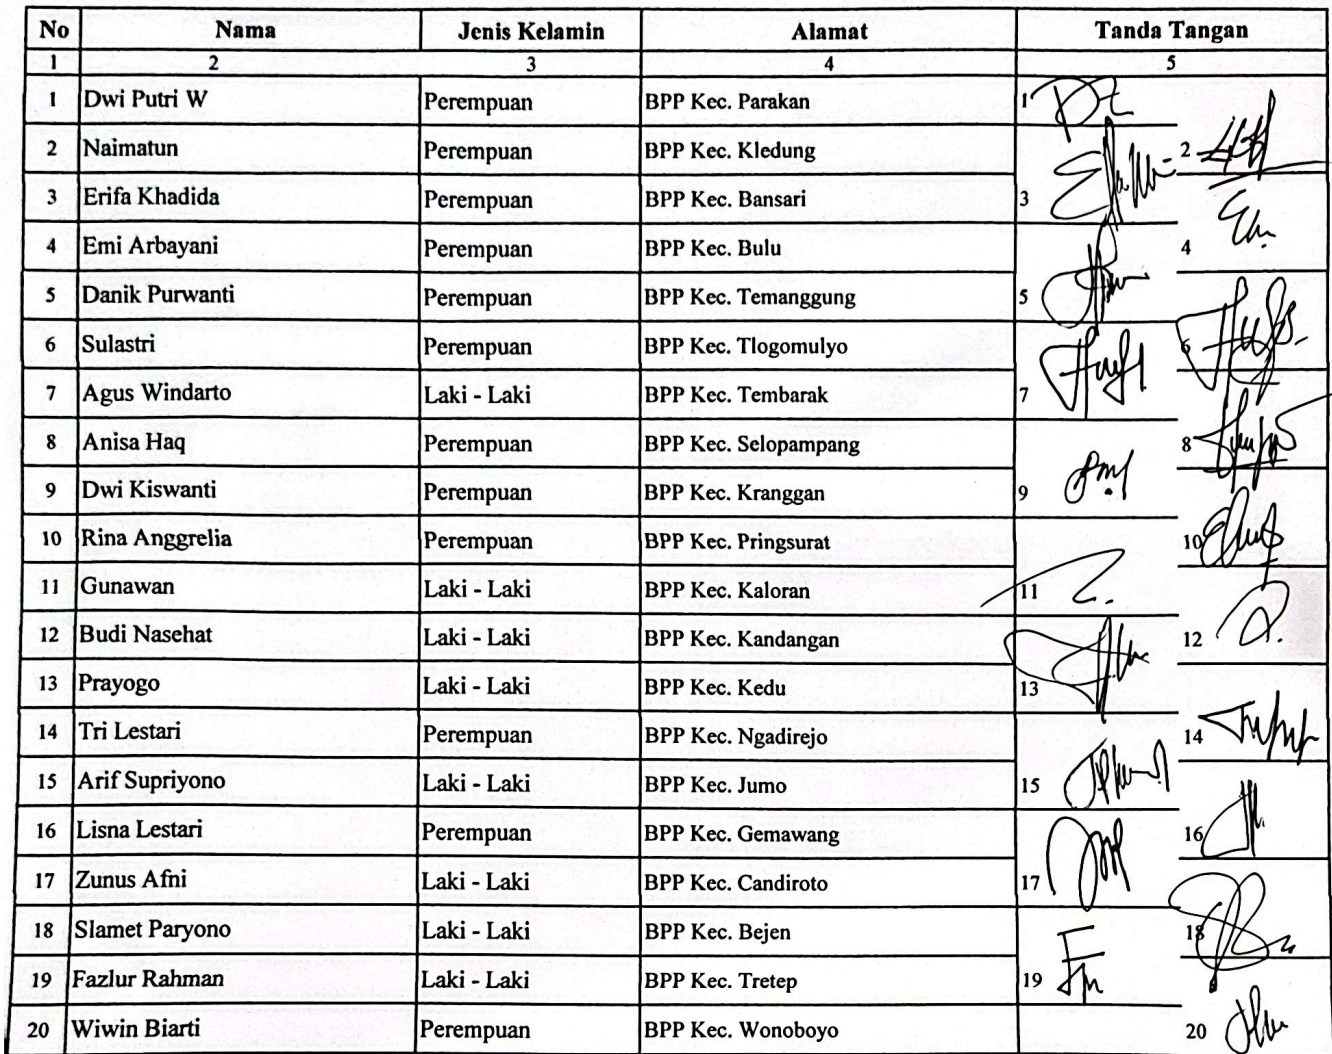 No Nama Jenis Kelamin Alamat Tanda Tangan
1 2 3 4 5
1 Dwi Putri W Perempuan BPP Kec. Parakan 1
2 Naimatun Perempuan BPP Kec. Kledung 2
3 Erifa Khadida Perempuan BPP Kec. Bansari 3
4 Emi Arbayani Perempuan BPP Kec. Bulu 4
5 Danik Purwanti Perempuan BPP Kec. Temanggung 5
6 Sulastri Perempuan BPP Kec. Tlogomulyo 6
7 Agus Windarto Laki - Laki BPP Kec. Tembarak 7
8 Anisa Haq Perempuan BPP Kec. Selopampang 8
9 Dwi Kiswanti Perempuan BPP Kec. Kranggan 9
10 Rina Anggrelia Perempuan BPP Kec. Pringsurat 10
11 Gunawan Laki - Laki BPP Kec. Kaloran 11
12 Budi Nasehat Laki - Laki BPP Kec. Kandangan 12
13 Prayogo Laki - Laki BPP Kec. Kedu 13
14 Tri Lestari Perempuan BPP Kec. Ngadirejo 14
15 Arif Supriyono Laki - Laki BPP Kec. Jumo 15
16 Lisna Lestari Perempuan BPP Kec. Gemawang 16
17 Zunus Afni Laki - Laki BPP Kec. Candiroto 17
18 Slamet Paryono Laki - Laki BPP Kec. Bejen 18
19 Fazlur Rahman Laki - Laki BPP Kec. Tretep 19
20 Wiwin Biarti Perempuan BPP Kec. Wonoboyo 20